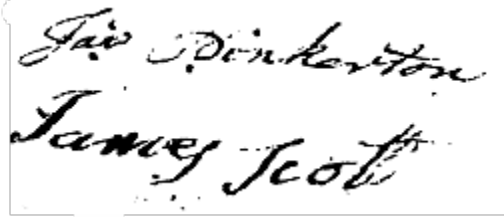 Jas Pinkerton
James Scott